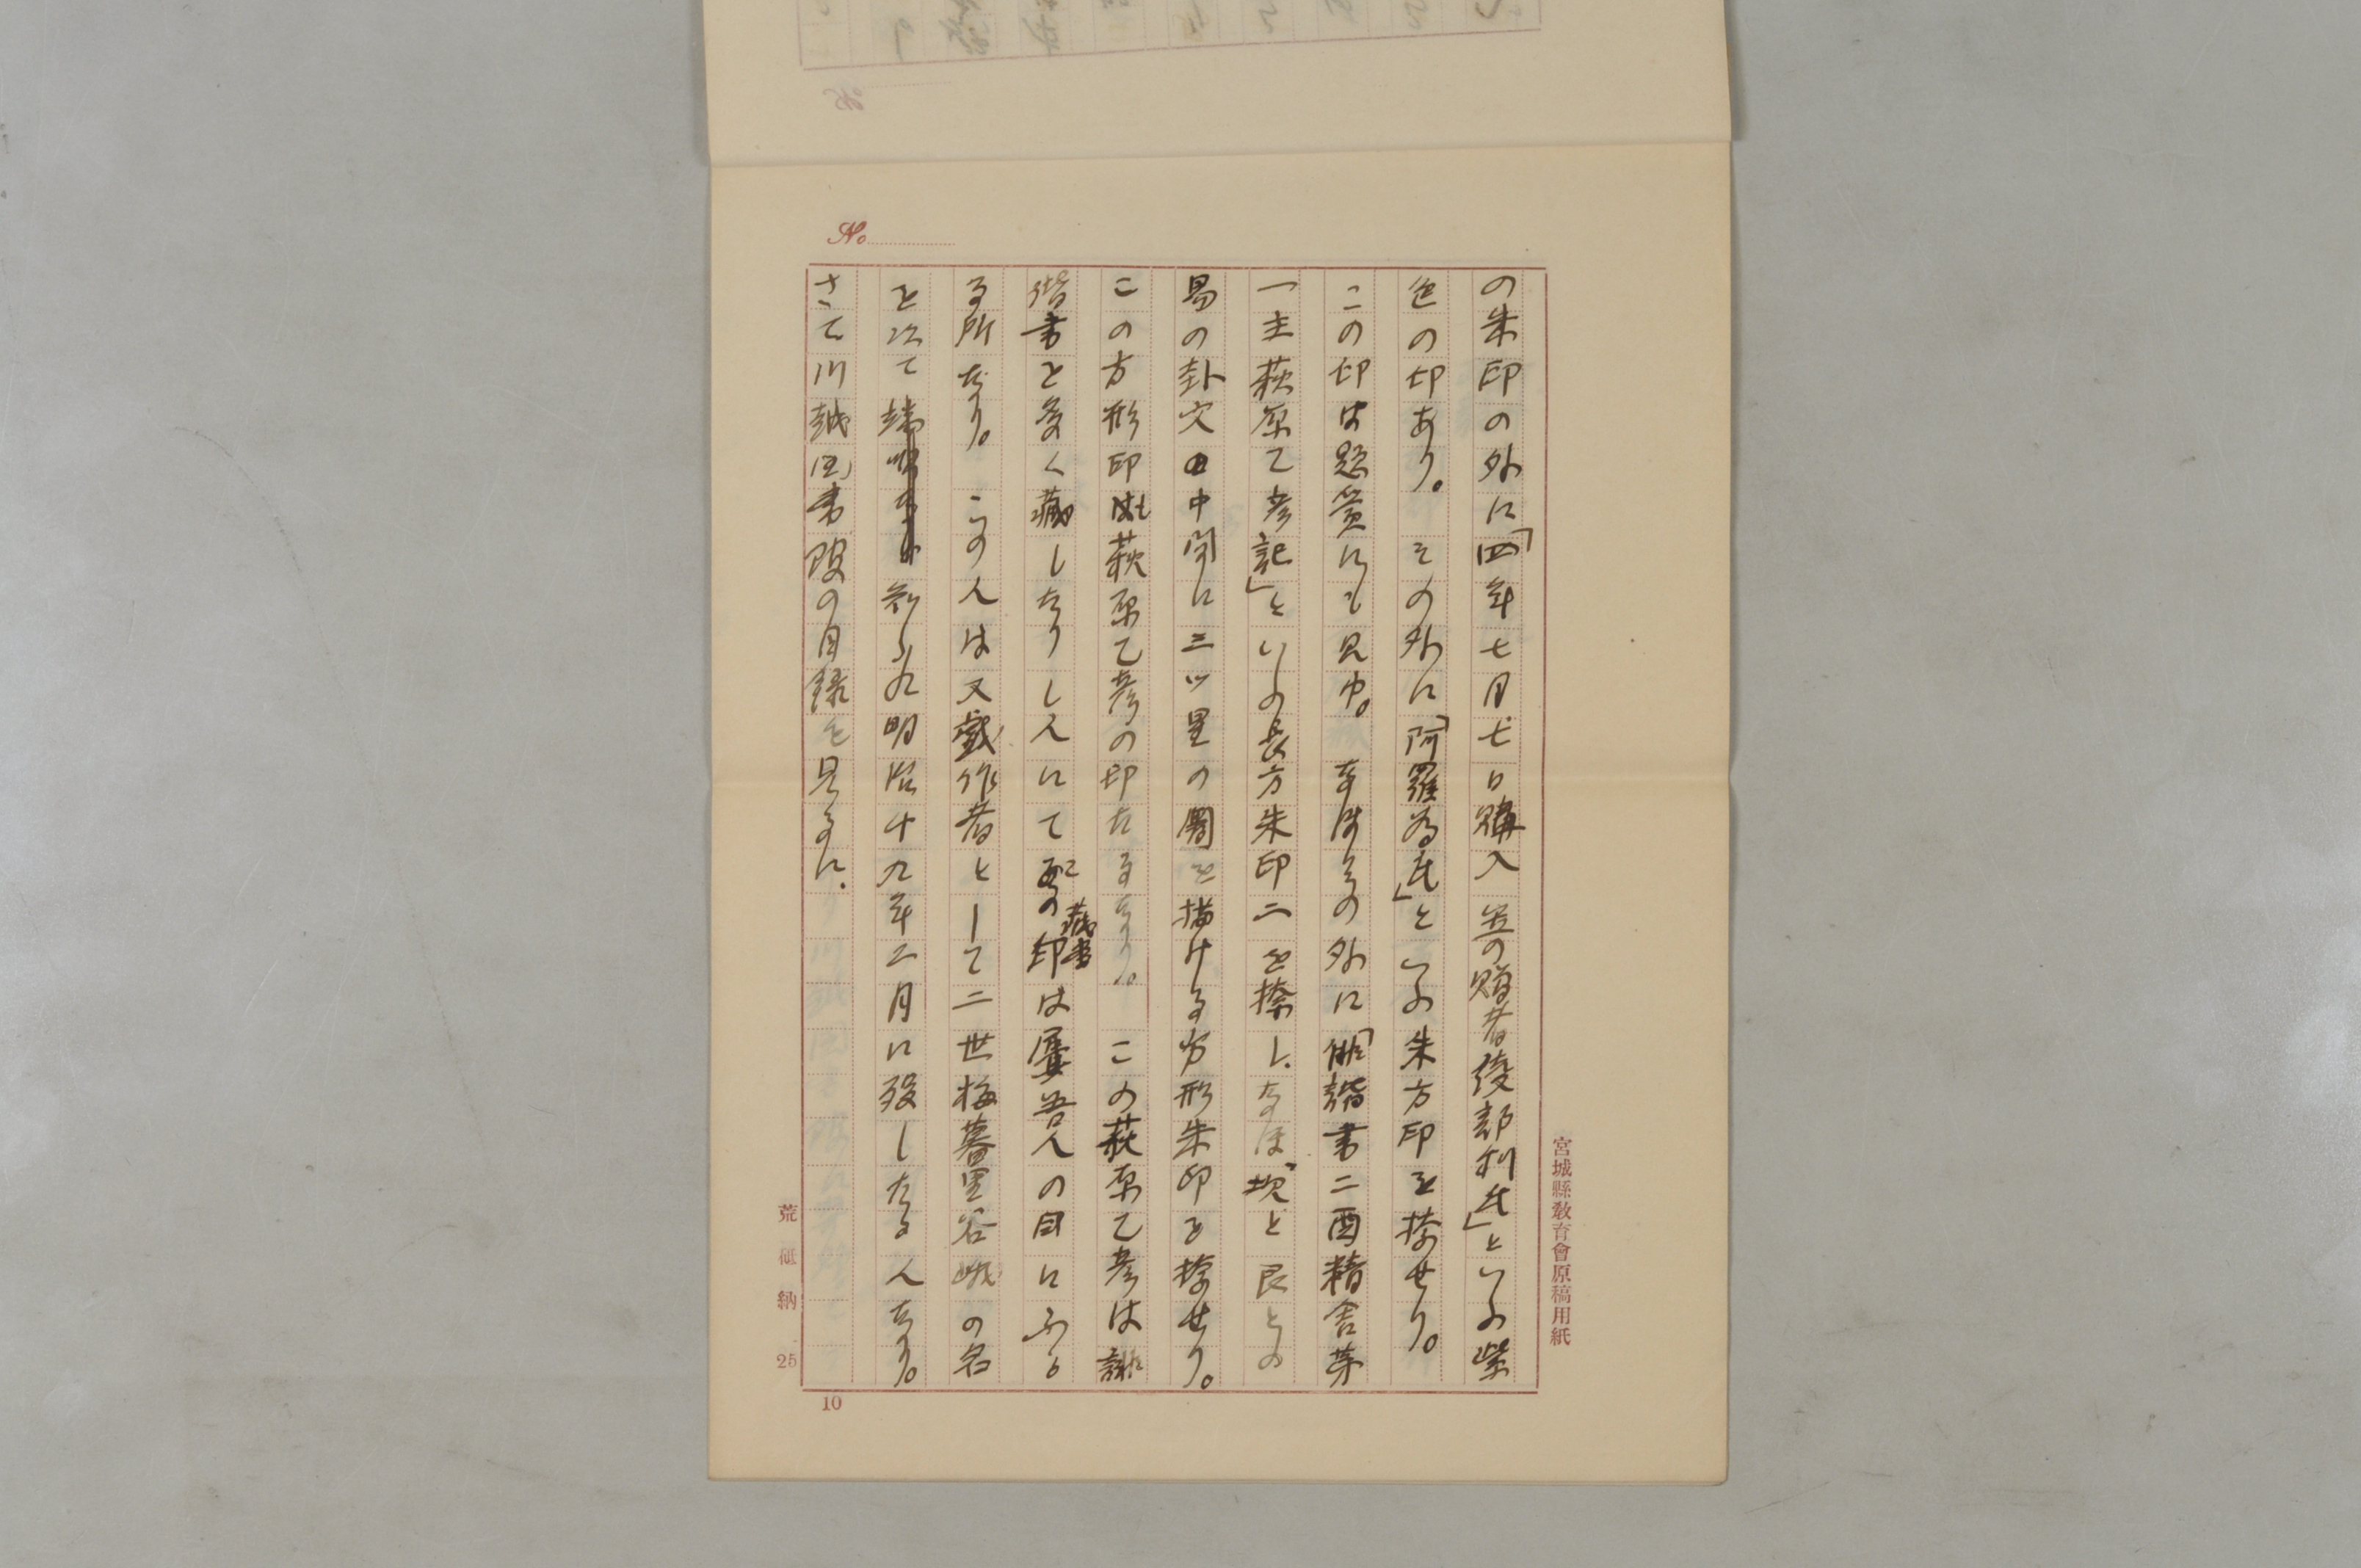 の朱印の外に「四年七月七日購入 並の贈者綾部利氏」といふ紫
色の印あり。 その外に「阿羅為氏」といふ朱方印を捺せり。
この印は題簽にも見ゆ。 なほその外に「俳諧書二酉精舎第
一主萩原乙彦記」といふの長方朱印二を捺し、なほ坎と艮との
易の卦穴の中間に三ッ星の圖を描ける方形朱印を捺せり。
この方形印も萩原乙彦の印なるなり。 この萩原乙彦は誹
諧書を多く藏したりし人にてこの藏書印は屢吾人の目にふる
る所なり。 この人は又戯作者として二世梅暮里谷峨の名
を次て 知られ明治十九年二月に歿したる人なり。
さて川越図書館の目録を見るに、
No
宮城縣敎育會原稿用紙
荒砥納 25
10